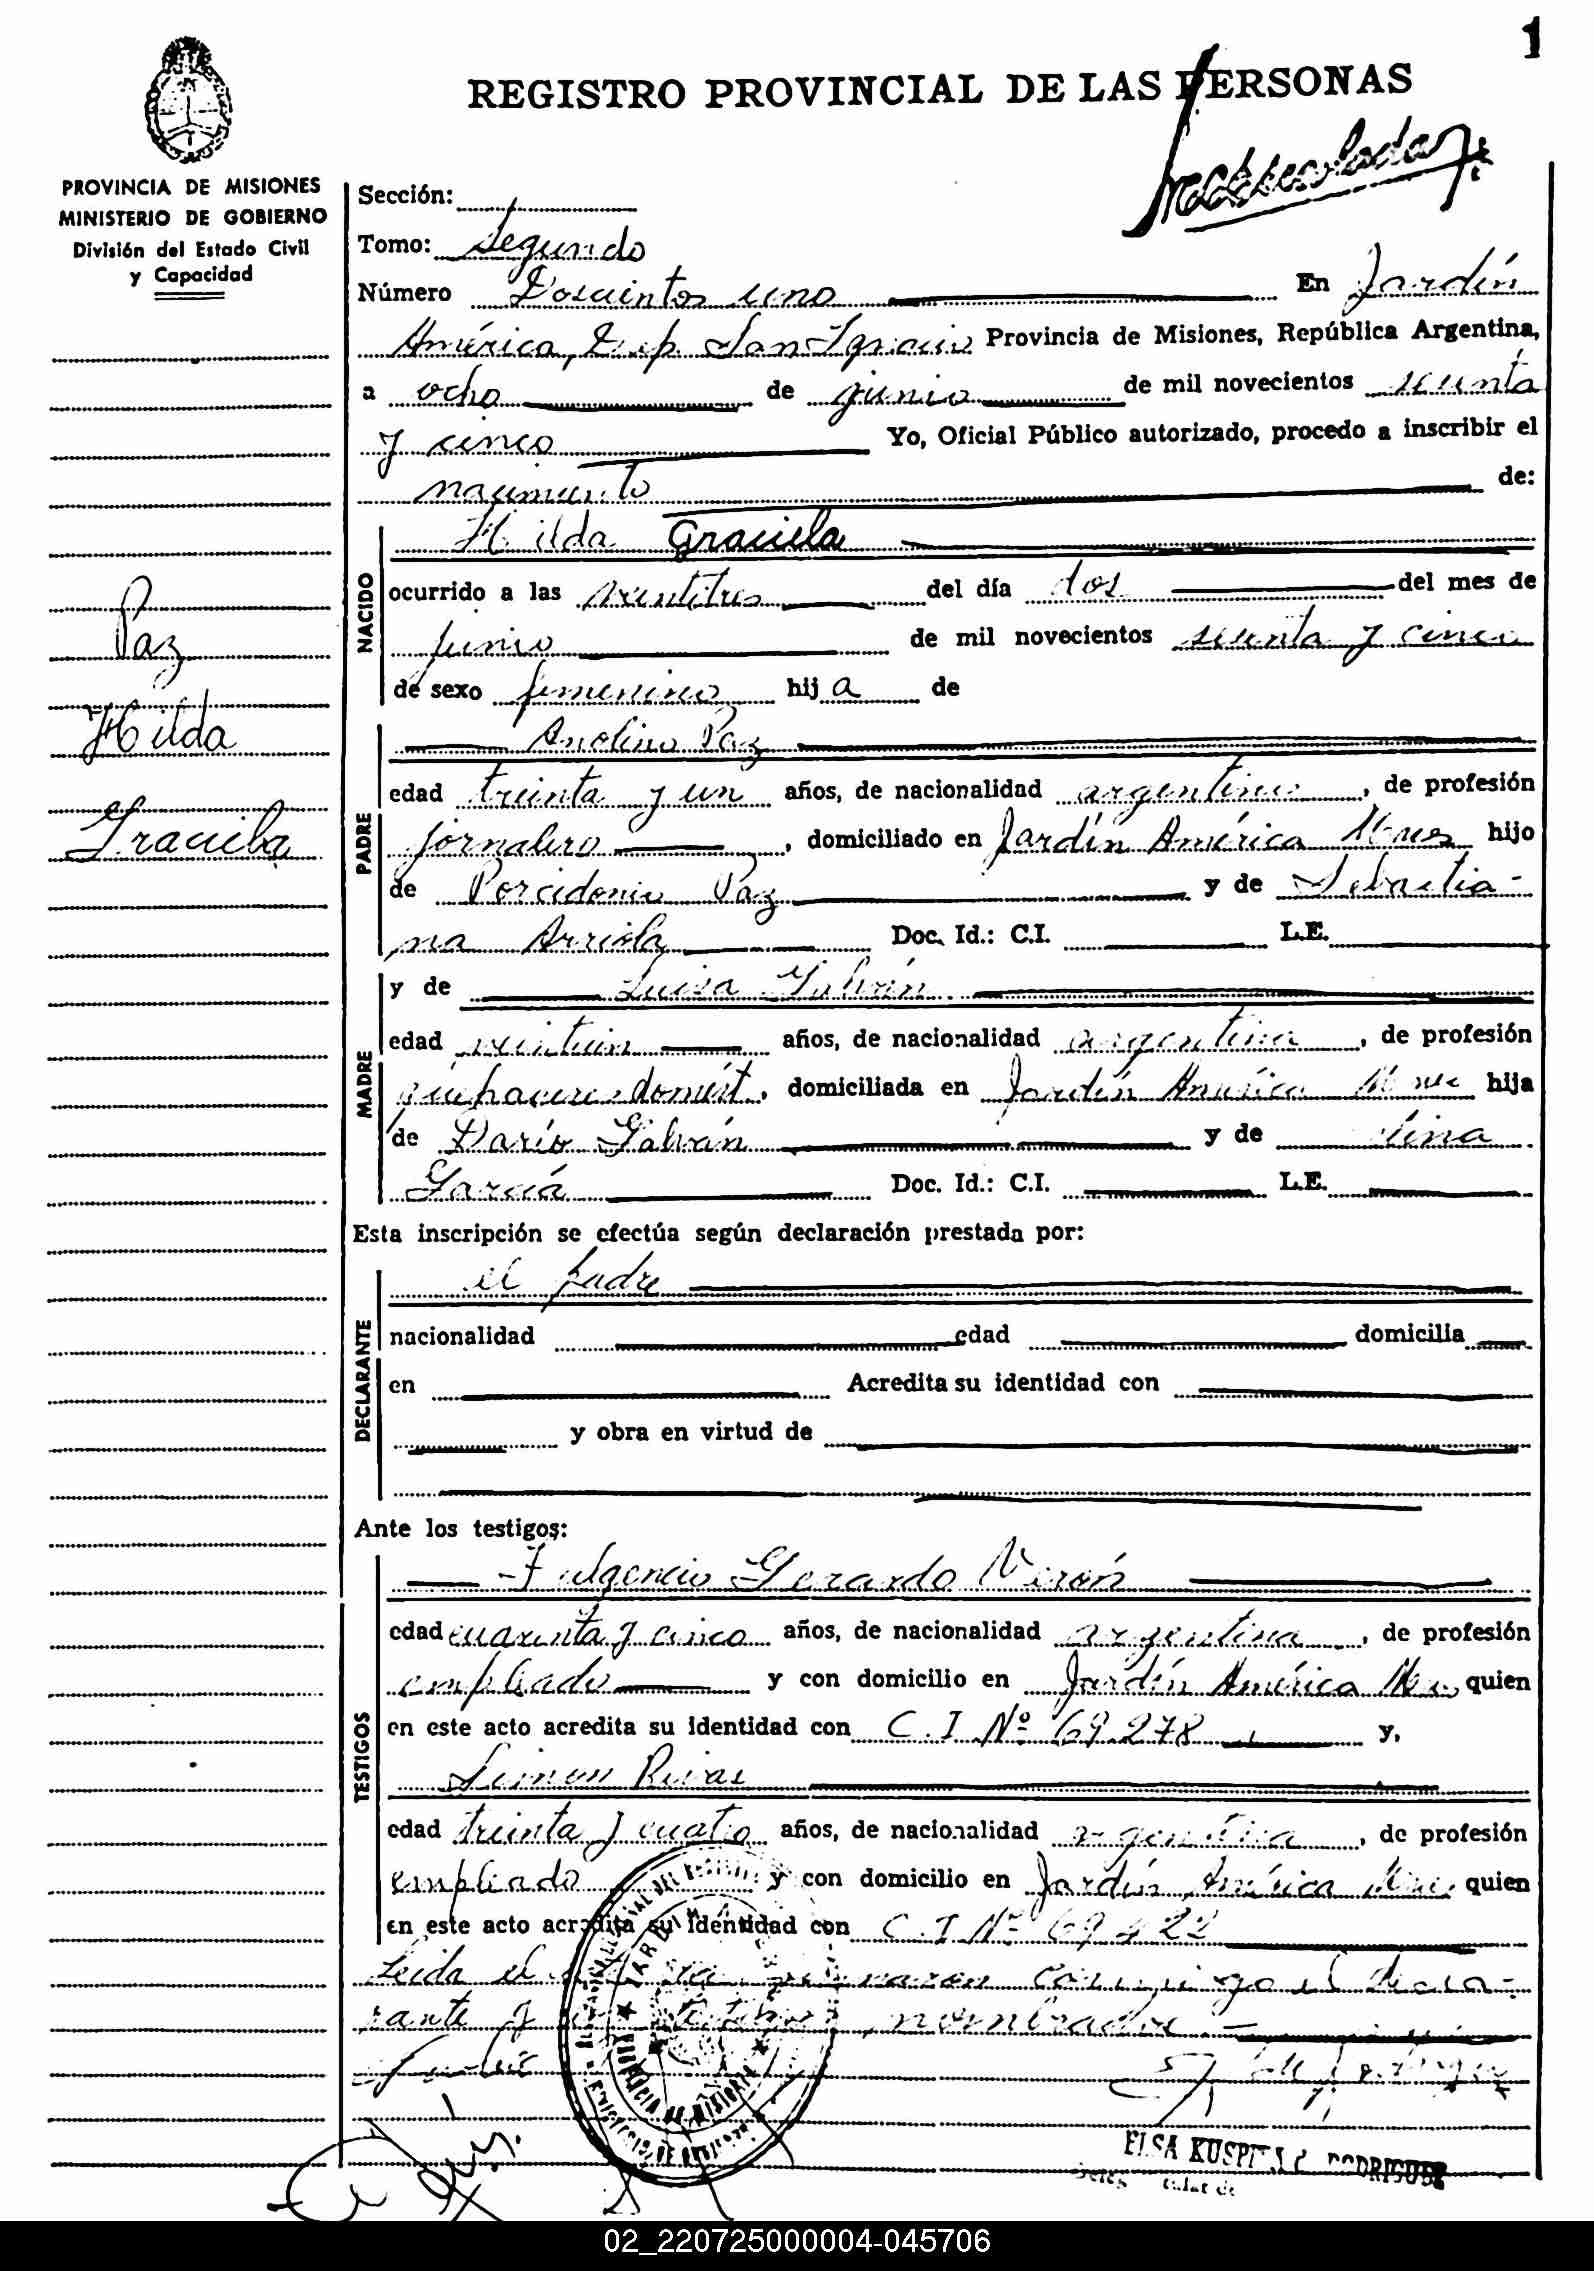 1
REGISTRO PROVINCIAL DE LAS PERSONAS
PROVINCIA DE MISIONES
MINISTERIO DE GOBIERNO
División del Estado Civil
y Capacidad
Sección:
Tomo: Segundo
Número Doscientos uno En Jardín
América, Dep. San Ignacio Provincia de Misiones, República Argentina,
a ocho de junio de mil novecientos sesenta
y cinco Yo, Oficial Público autorizado, procedo a inscribir el
nacimiento de:
Paz
Hilda
Graciela
NACIDO
Hilda Graciela
ocurrido a las veintitres del día dos del mes de
junio de mil novecientos sesenta y cinco
de sexo femenino hija de
PADRE
Anolino Paz
edad treinta y un años, de nacionalidad argentina, de profesión
jornalero, domiciliado en Jardín América Mnes hijo
de Porcidonio Paz y de Sebastia-
na Arriola Doc. Id.: C.I. L.E.
MADRE
y de Luisa Galván
edad veintiún años, de nacionalidad argentina, de profesión
quehaceres domést, domiciliada en Jardín América Mnes hija
de Darío Galván y de
García Doc. Id.: C.I. L.E.
Esta inscripción se efectúa según declaración prestada por:
DECLARANTE
el padre
nacionalidad edad domicilia
en Acredita su identidad con
y obra en virtud de
Ante los testigos:
TESTIGOS
Fulgencio Gerardo Verón
edad cuarenta y cinco años, de nacionalidad argentina, de profesión
empleado y con domicilio en Jardín América Mnes quien
en este acto acredita su identidad con C.I Nº 69.278 y,
Simon Rivas
edad treinta y cuatro años, de nacionalidad argentina, de profesión
empleado y con domicilio en Jardín América Mnes quien
en este acto acredita su identidad con C.I Nº
Leída el conmigo el decla-
rante y nombrados.-
ELSA KUSPITA RODRIGUEZ
02_220725000004-045706